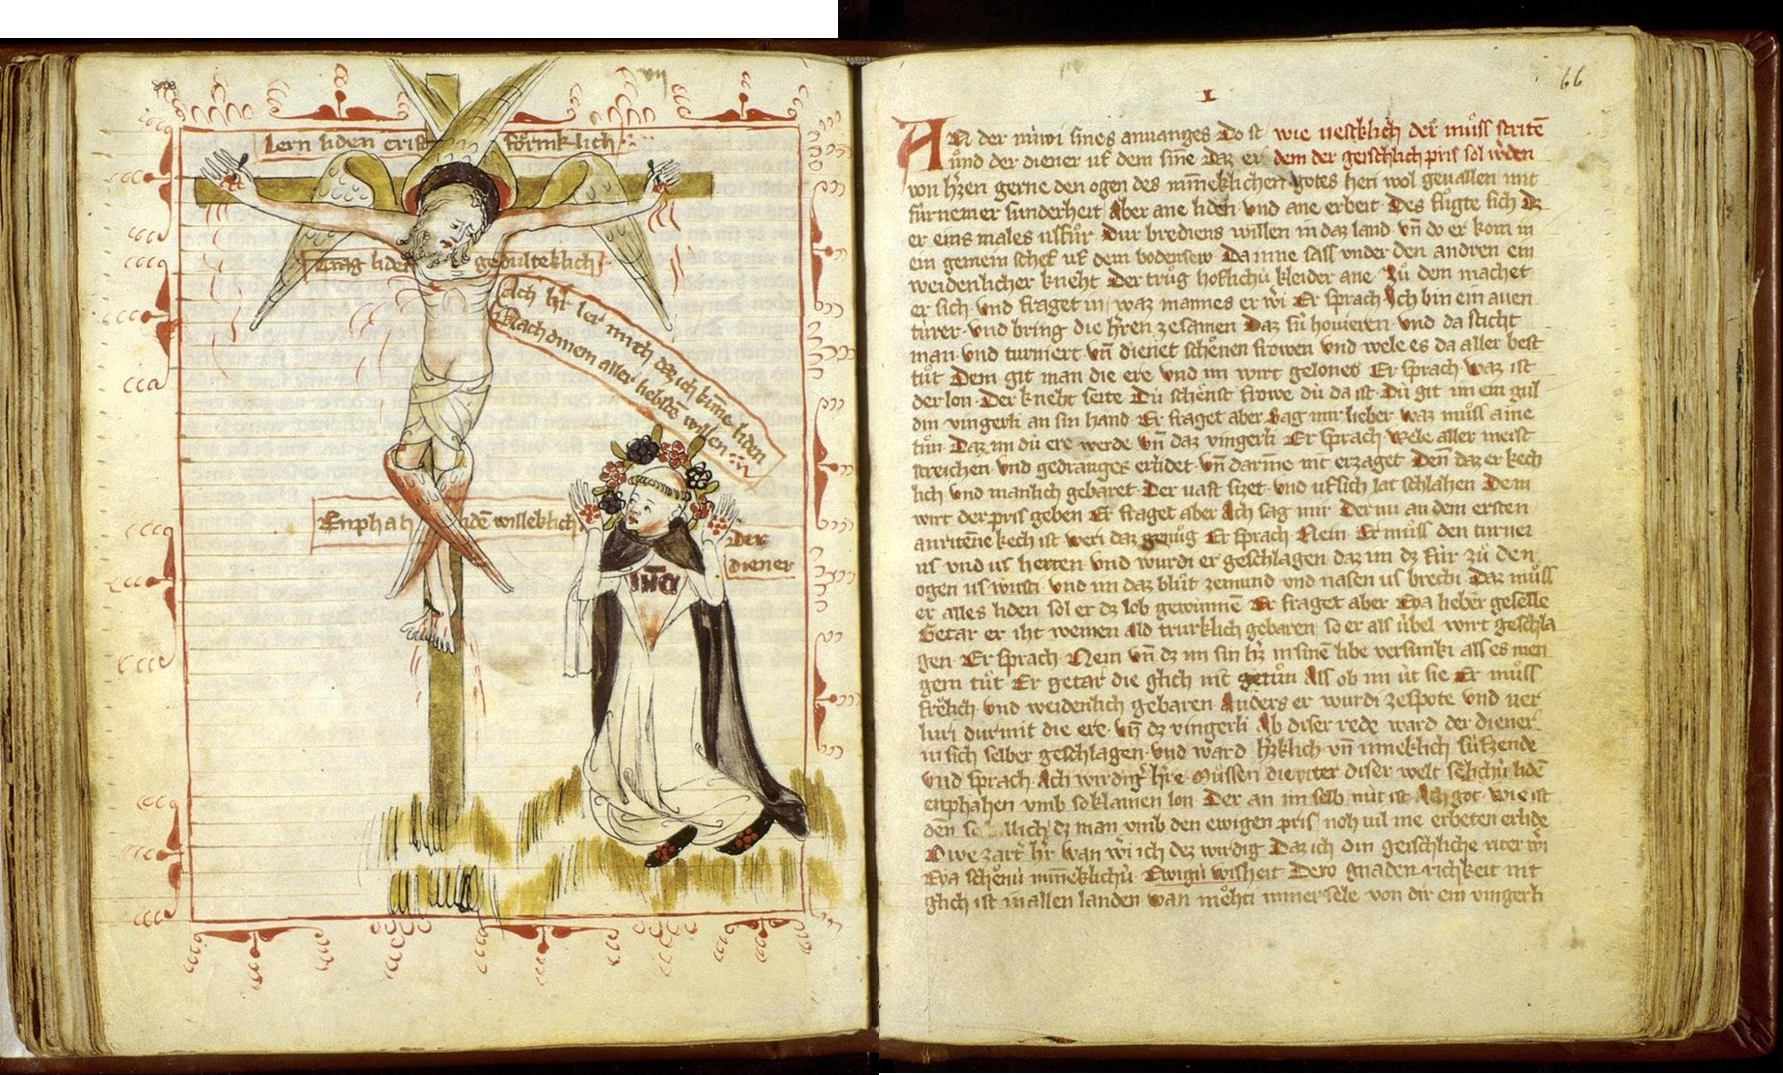 vii
Lern liden crist förmklich
Trag liden gedulteklich
Ach h̾r ler mich daz ich kunne liden
Nach dinem aller liebsten willen
Enphah liden willeklich
Der
diener
IHC
66
I
AN der nuwi sines anuanges Do st wie uestklich der můss striten
ůnd der diener uf dem sine daz er dem der geischlich pris sol w̾den
von h̾zen gerne den ogen des minneklichen gotes heti wol geuallen mit
fúrnemer sunderheit Aber ane liden vnd ane erbeit Des fůgte sich dz
er eins males usfůr Dur brediens willen in daz land vn̄ do er kom in
ein gemein schef uf dem bodensew Da inne sass vnder den andren ein
weidenlicher kneht Der trůg hoflichú kleider ane Zů dem machet
er sich vnd fraget in waz mannes er wi Er sprach Ich bin ein auen
túrer vnd bring die h̾ren zesamen Daz sú houieren vnd da sticht
man vnd turniert vn̄ dienet schönen frowen vnd wele es da aller best
tůt Dem git man die ere vnd im wirt gelonet Er sprach waz ist
der lon Der kneht seite Dú schönst frowe dú da ist Dú git im ein gul
din vingerli an sin hand Er fraget aber Sag mir lieber waz můss aine
tůn Daz im dú ere werde vn̄ daz vingerli Er sprach Wele aller meist
streichen vnd gedranges erlidet vn̄ darinne nit erzaget Den̄ daz er kech
lich vnd manlich gebaret Der uast sizet vnd uf sich lat schlahen Dem
wirt der pris geben Er fraget aber Ach sag mir Der nu an dem ersten
anritenne kech ist weri daz genůg Er sprach Nein Er můss den turnei
us vnd us herten vnd wurdi er geschlagen daz im dz fúr zů den
ogen us wústi vnd im daz blůt zemund vnd nasen us brechi Daz můss
er alles liden sol er dz lob gewinnen Er fraget aber Eya lieber geselle
Getar er iht weinen ald trurklich gebaren so er als úbel wirt geschla
gen Er sprach Nein vn̄ dz im sin h̾z in sinē libe versunki alss es men
gem tůt Er getar die glich nit getůn Als ob im út sie Er můss
frölich vnd weidenlich gebaren Anders er wurdi zespote vnd uer
luri dur mit die ere vn̄ dz vingerli Ab diser rede ward der diener
in sich selber geschlagen vnd ward h̾zklich vn̄ inneklich súfzende
vnd sprach Ach wirdig̾ h̾re Mússen die riter diser welt sölichú lidē
enphahen vmb so klainen lon Der an im selb nút ist Ach got wie ist
den̄ so billich dz man vmb den ewigen pris noh uil me erbeten erlide
Owe zart̾ h̾r wan wi ich dez wirdig Daz ich din geischliche riter wi
Eya schönú minneklichú Ewigú wisheit Dero gnaden richkeit nit
glich ist in allen landen wan möhti miner sele von dir ein vingerli